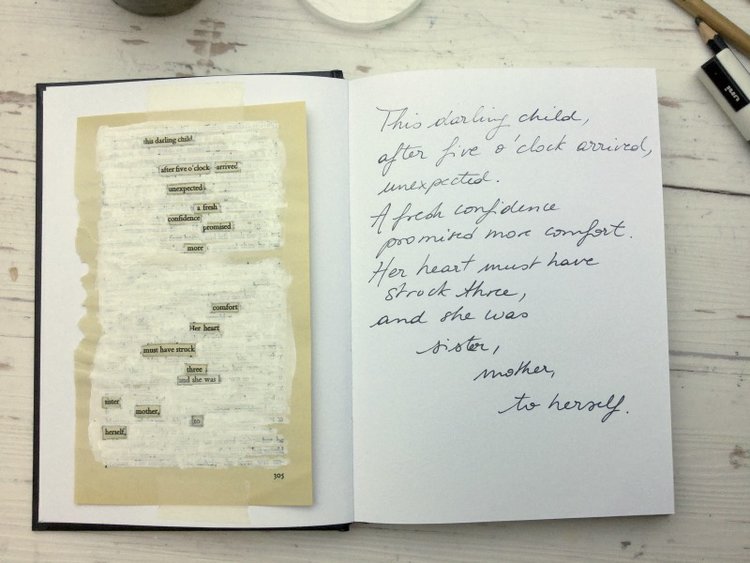 this darling child
after five o'clock arrived
unexpected
a fresh
confidence
promised
more
comfort
Her heart
must have struck
three
and she was
sister
mother, to
herself,
305
This darling child,
after five o'clock arrived,
unexpected.
A fresh confidence
promised more comfort.
Her heart must have
struck three,
and she was
sister,
mother,
to herself.